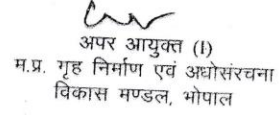 अपर आयुक्त (I)
म.प्र. गृह निर्माण एवं अधोसंरचना
विकास मण्डल, भोपाल